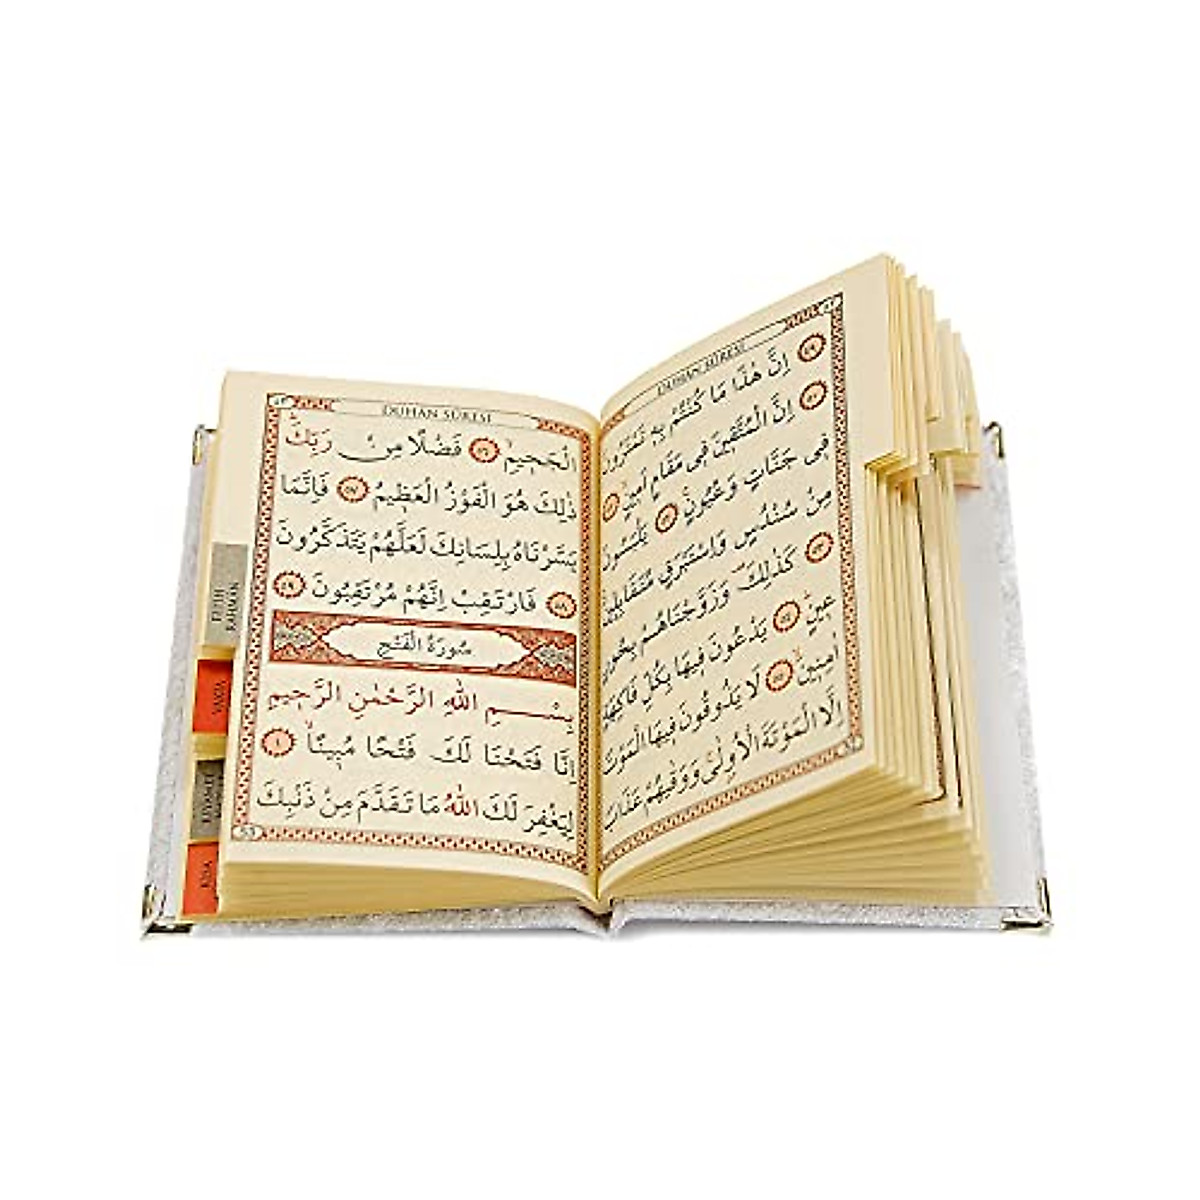 DUHAN SÛRESİ
٤٩ اِنَّ هٰذَا مَا كُنْتُمْ بِهِ تَمْتَرُونَ
٥٠ اِنَّ الْمُتَّقِينَ فِى مَقَامٍ اَمِينٍ ٥١
فِى جَنَّاتٍ وَعُيُونٍ ٥٢ يَلْبَسُونَ
مِنْ سُنْدُسٍ وَاِسْتَبْرَقٍ مُتَقَابِلِينَ
٥٣ كَذٰلِكَ وَزَوَّجْنَاهُمْ بِحُورٍ
عِينٍ ٥٤ يَدْعُونَ فِيهَا بِكُلِّ فَاكِهَةٍ
اٰمِنِينَ ٥٥ لَا يَذُوقُونَ فِيهَا الْمَوْتَ
اِلَّا الْمَوْتَةَ الْاُولٰى وَوَقٰيهُمْ عَذَابَ
52
DUHAN SÛRESİ
٥٣
الْجَحِيمِ ٥٦ فَضْلًا مِنْ رَبِّكَ
ذٰلِكَ هُوَ الْفَوْزُ الْعَظِيمُ ٥٧ فَاِنَّمَا
يَسَّرْنَاهُ بِلِسَانِكَ لَعَلَّهُمْ يَتَذَكَّرُونَ
٥٨ فَارْتَقِبْ اِنَّهُمْ مُرْتَقِبُونَ ٥٩
سُورَةُ الْفَتْحِ
بِسْمِ اللّٰهِ الرَّحْمٰنِ الرَّحِيمِ
اِنَّا فَتَحْنَا لَكَ فَتْحًا مُبِينًا ١
لِيَغْفِرَ لَكَ اللّٰهُ مَا تَقَدَّمَ مِنْ ذَنْبِكَ
53
FETİH
RAHMAN
VAKIA
KIYAMET